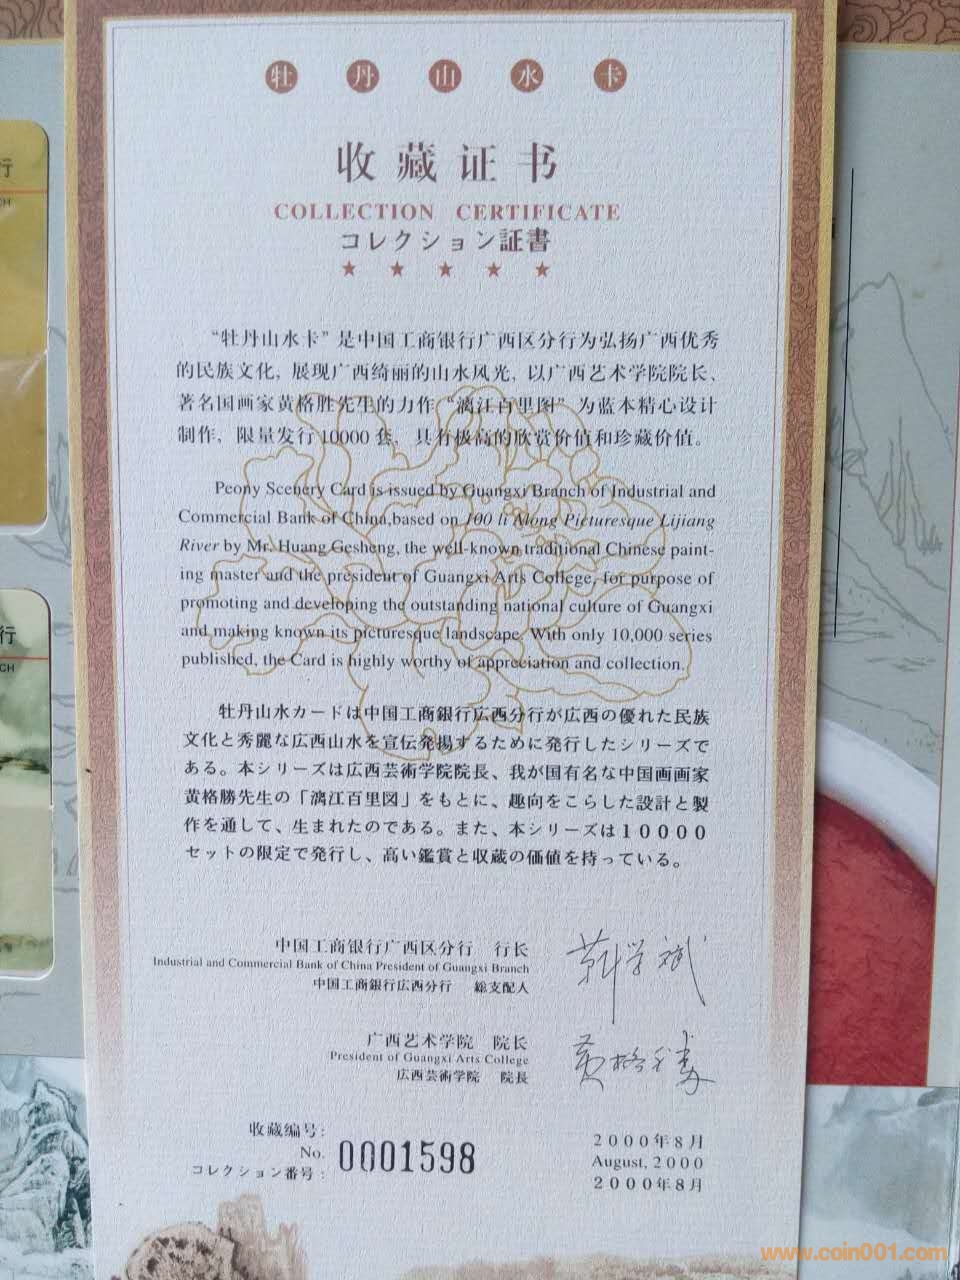 牡丹山水卡
收藏证书
COLLECTION CERTIFICATE
コレクション証書
“牡丹山水卡”是中国工商银行广西区分行为弘扬广西优秀
的民族文化，展现广西绮丽的山水风光，以广西艺术学院院长、
著名国画家黄格胜先生的力作“漓江百里图”为蓝本精心设计
制作，限量发行10000套，具有极高的欣赏价值和珍藏价值。
Peony Scenery Card is issued by Guangxi Branch of Industrial and
Commercial Bank of China,based on 100 li Along Picturesque Lijiang
River by Mr. Huang Gesheng, the well-known traditional Chinese paint-
ing master and the president of Guangxi Arts College, for purpose of
promoting and developing the outstanding national culture of Guangxi
and making known its picturesque landscape. With only 10,000 series
published, the Card is highly worthy of appreciation and collection.
牡丹山水カードは中国工商銀行広西分行が広西の優れた民族
文化と秀麗な広西山水を宣伝発揚するために発行したシリーズで
ある。本シリーズは広西芸術学院院長、我が国有名な中国画画家
黄格勝先生の「漓江百里図」をもとに、趣向をこらした設計と製
作を通して、生まれたのである。また、本シリーズは10000
セットの限定で発行し、高い鑑賞と収蔵の価値を持っている。
中国工商银行广西区分行 行长
Industrial and Commercial Bank of China President of Guangxi Branch
中国工商銀行広西分行 総支配人
广西艺术学院 院长
President of Guangxi Arts College
広西芸術学院 院長
黄格胜
收藏编号:
No.
コレクション番号:
0001598
2000年8月
August, 2000
2000年8月
行
CH
行
CH
www.coin001.com